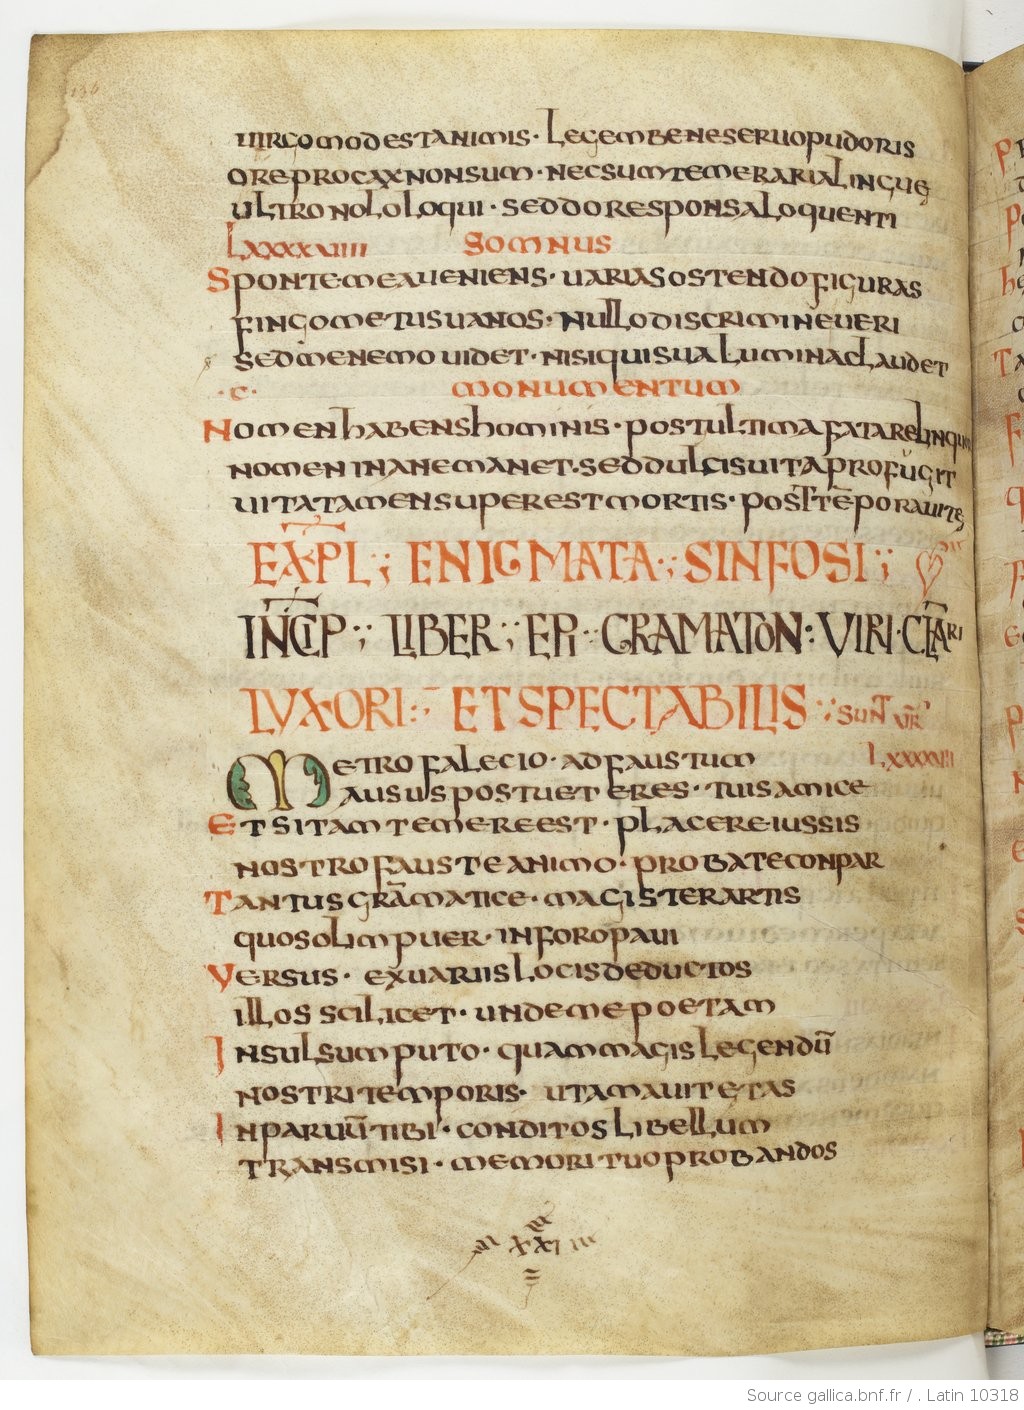 136
UIRGOMODESTANIMIS · LEGEMBENESERUOPUDORIS
OREPROCAXNONSUM · NECSUMTEMERARIALINGUE
ULTRONOLOLOQUI · SEDDORESPONSALOQUENTI
LXXXXVIIII SOMNUS
SPONTEMEAUENIENS · UARIASOSTENDOFIGURAS
FINGOMETUSUANOS · NULLODISCRIMINEUERI
SEDMENEMOUIDET · NISIQUISUALUMINACLAUDET
· C · MONUMENTUM
NOMENHABENSHOMINIS · POSTULTIMAFATARELINQUOR
NOMENINANEMANET · SEDDULCISUITAPROFUGIT
UITATAMENSUPERESTMORTIS · POSTTĒPORAUITE
EXPL ; ENIGMATA ; SINFOSI ;
INCIP ; LIBER ; EPI · GRAMATON : VIRI · CLARI
LVXORI : ET SPECTABILIS ; SUNT VR̄
METROFALECIO · ADFAUSTUM LXXXXIII
AUSUSPOSTUETERES · TUISAMICE
ETSITAMTEMEREEST · PLACEREIUSSIS
NOSTROFAUSTEANIMO · PROBATECONPAR
TANTUSGRĀMATICE · MAGISTERARTIS
QUOSOLIMPUER · INFOROPAUI
VERSUS · EXUARIISLOCISDEDUCTOS
ILLOSSCILICET · UNDEMEPOETAM
INSULSUMPUTO · QUAMMAGISLEGENDŪ
NOSTRITEMPORIS · UTAMAUITETAS
INPARUŪTIBI · CONDITOSLIBELLUM
TRANSMISI · MEMORITUOPROBANDOS
XXI
Source gallica.bnf.fr / . Latin 10318